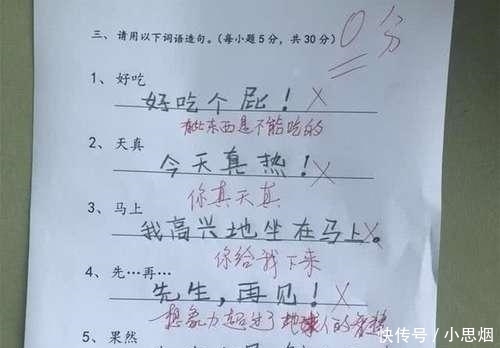 三、请用以下词语造句。(每小题5分，共30分)
0分
1、好吃
好吃个屁！
有些东西是不能吃的
2、天真
今天真热！
你真天真
3、马上
我高兴地坐在马上。
你给我下来
4、先…再…
先生，再见！
想象力超过了地球人的
5、果然
快传号／小思烟